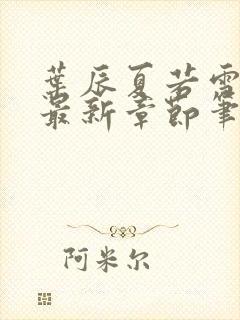 葉辰夏若雪
最新章節筆
阿米尔